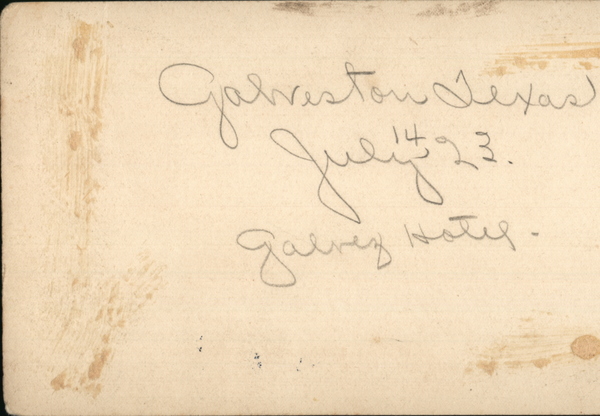 Galveston Texas
July 14 23.
Galvez Hotel.